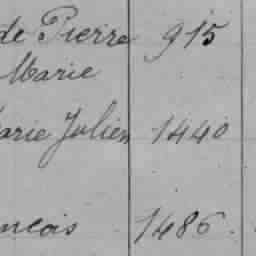 de Pierre 915
Marie
arie Julien 1440
ncois 1486.